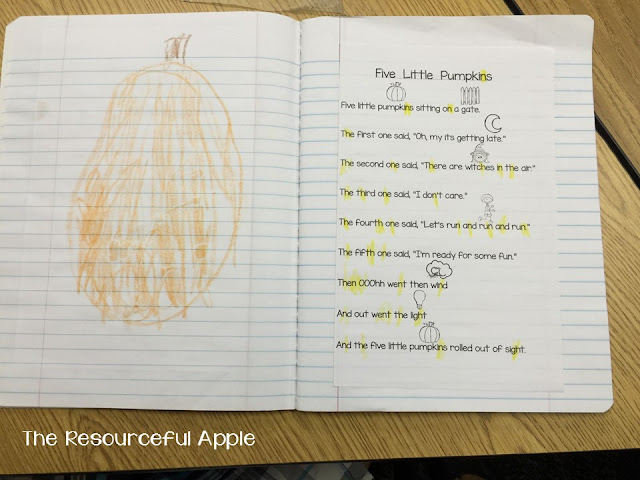 Five Little Pumpkins
Five little pumpkins sitting on a gate.
The first one said, "Oh, my its getting late."
The second one said, "There are witches in the air."
The third one said, "I don't care."
The fourth one said, "Let's run and run and run."
The fifth one said, "I'm ready for some fun."
Then OOOhh went then wind
And out went the light
And the five little pumpkins rolled out of sight.
The Resourceful Apple